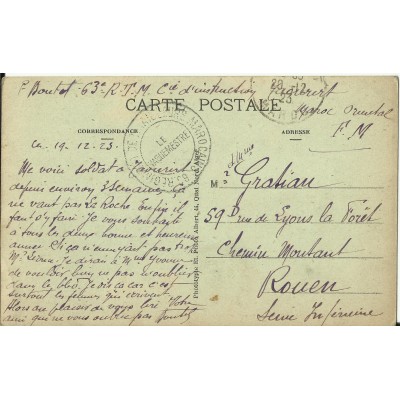 P. Boutet - 63e R.T.M. Cie d'instruction Taourirt
Maroc Oriental
CARTE POSTALE
F. M
CORRESPONDANCE
ADRESSE
LE
VAGUEMESTRE
Ce, 19-12-23.
Me voici soldat à Taourirt
depuis environ 3 semaines. Ça
ne vaut pas La Roche. Enfin il
faut s'y faire. Je vous souhaite
à tous les deux bonne et heureuse
année. Si ça
Mr je dirai à Mme Yvonne
de vouloir bien ne pas m'oublier
dans le Je dis ça car c'est
surtout les femmes qui écrivent
Alors au plaisir de vous lire Votre
ami qui ne vous oublie pas Boutet
Mr
Gratian
59 D rue de Lyons la Forêt
Chemin Montant
Rouen
Seine Inférieure